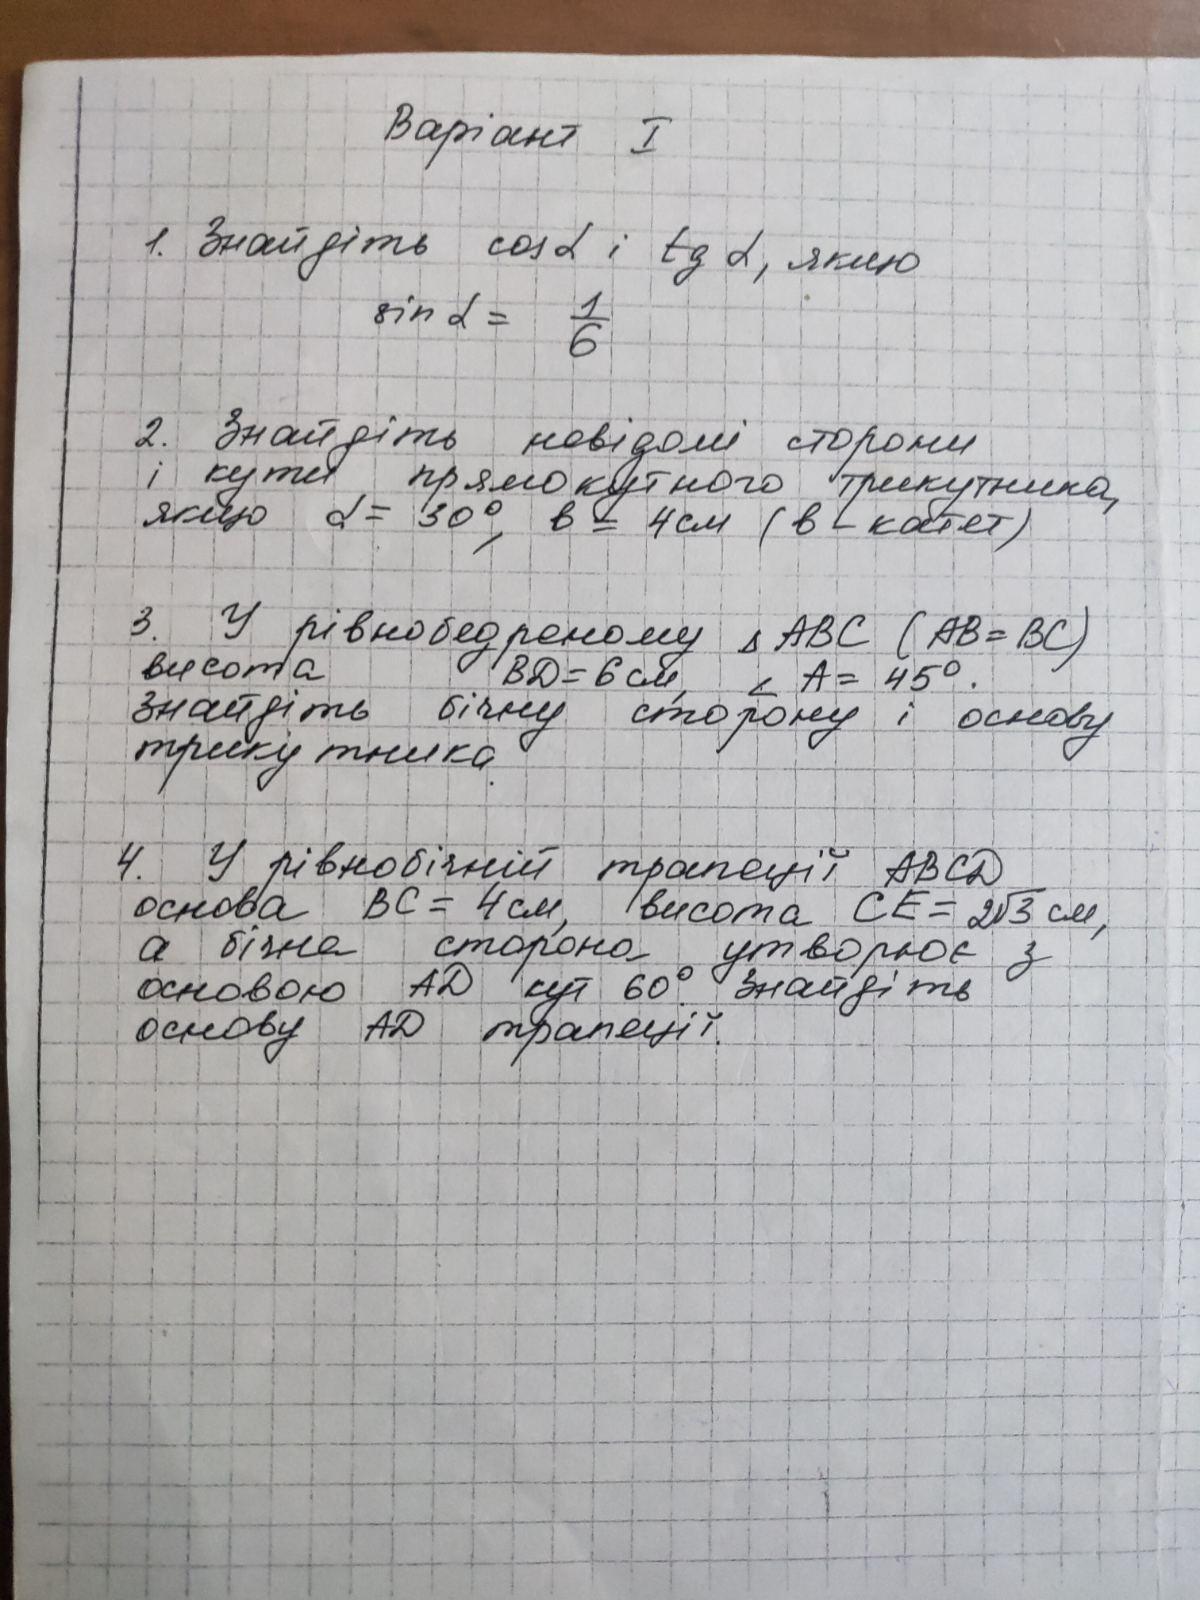 Варіант I
1. Знайдіть cos α і tg α, якщо
sin α = 1/6
2. Знайдіть невідомі сторони
і кути прямокутного трикутника,
якщо α = 30°, в = 4 см (в - катет)
3. У рівнобедреному △ ABC (AB = BC)
висота BD = 6 см, ∠ A = 45°.
Знайдіть бічну сторону і основу
трикутника.
4. У рівнобічній трапеції ABCD
основа BC = 4 см, висота CE = 2√3 см,
а бічна сторона утворює з
основою AD кут 60°. Знайдіть
основу AD трапеції.